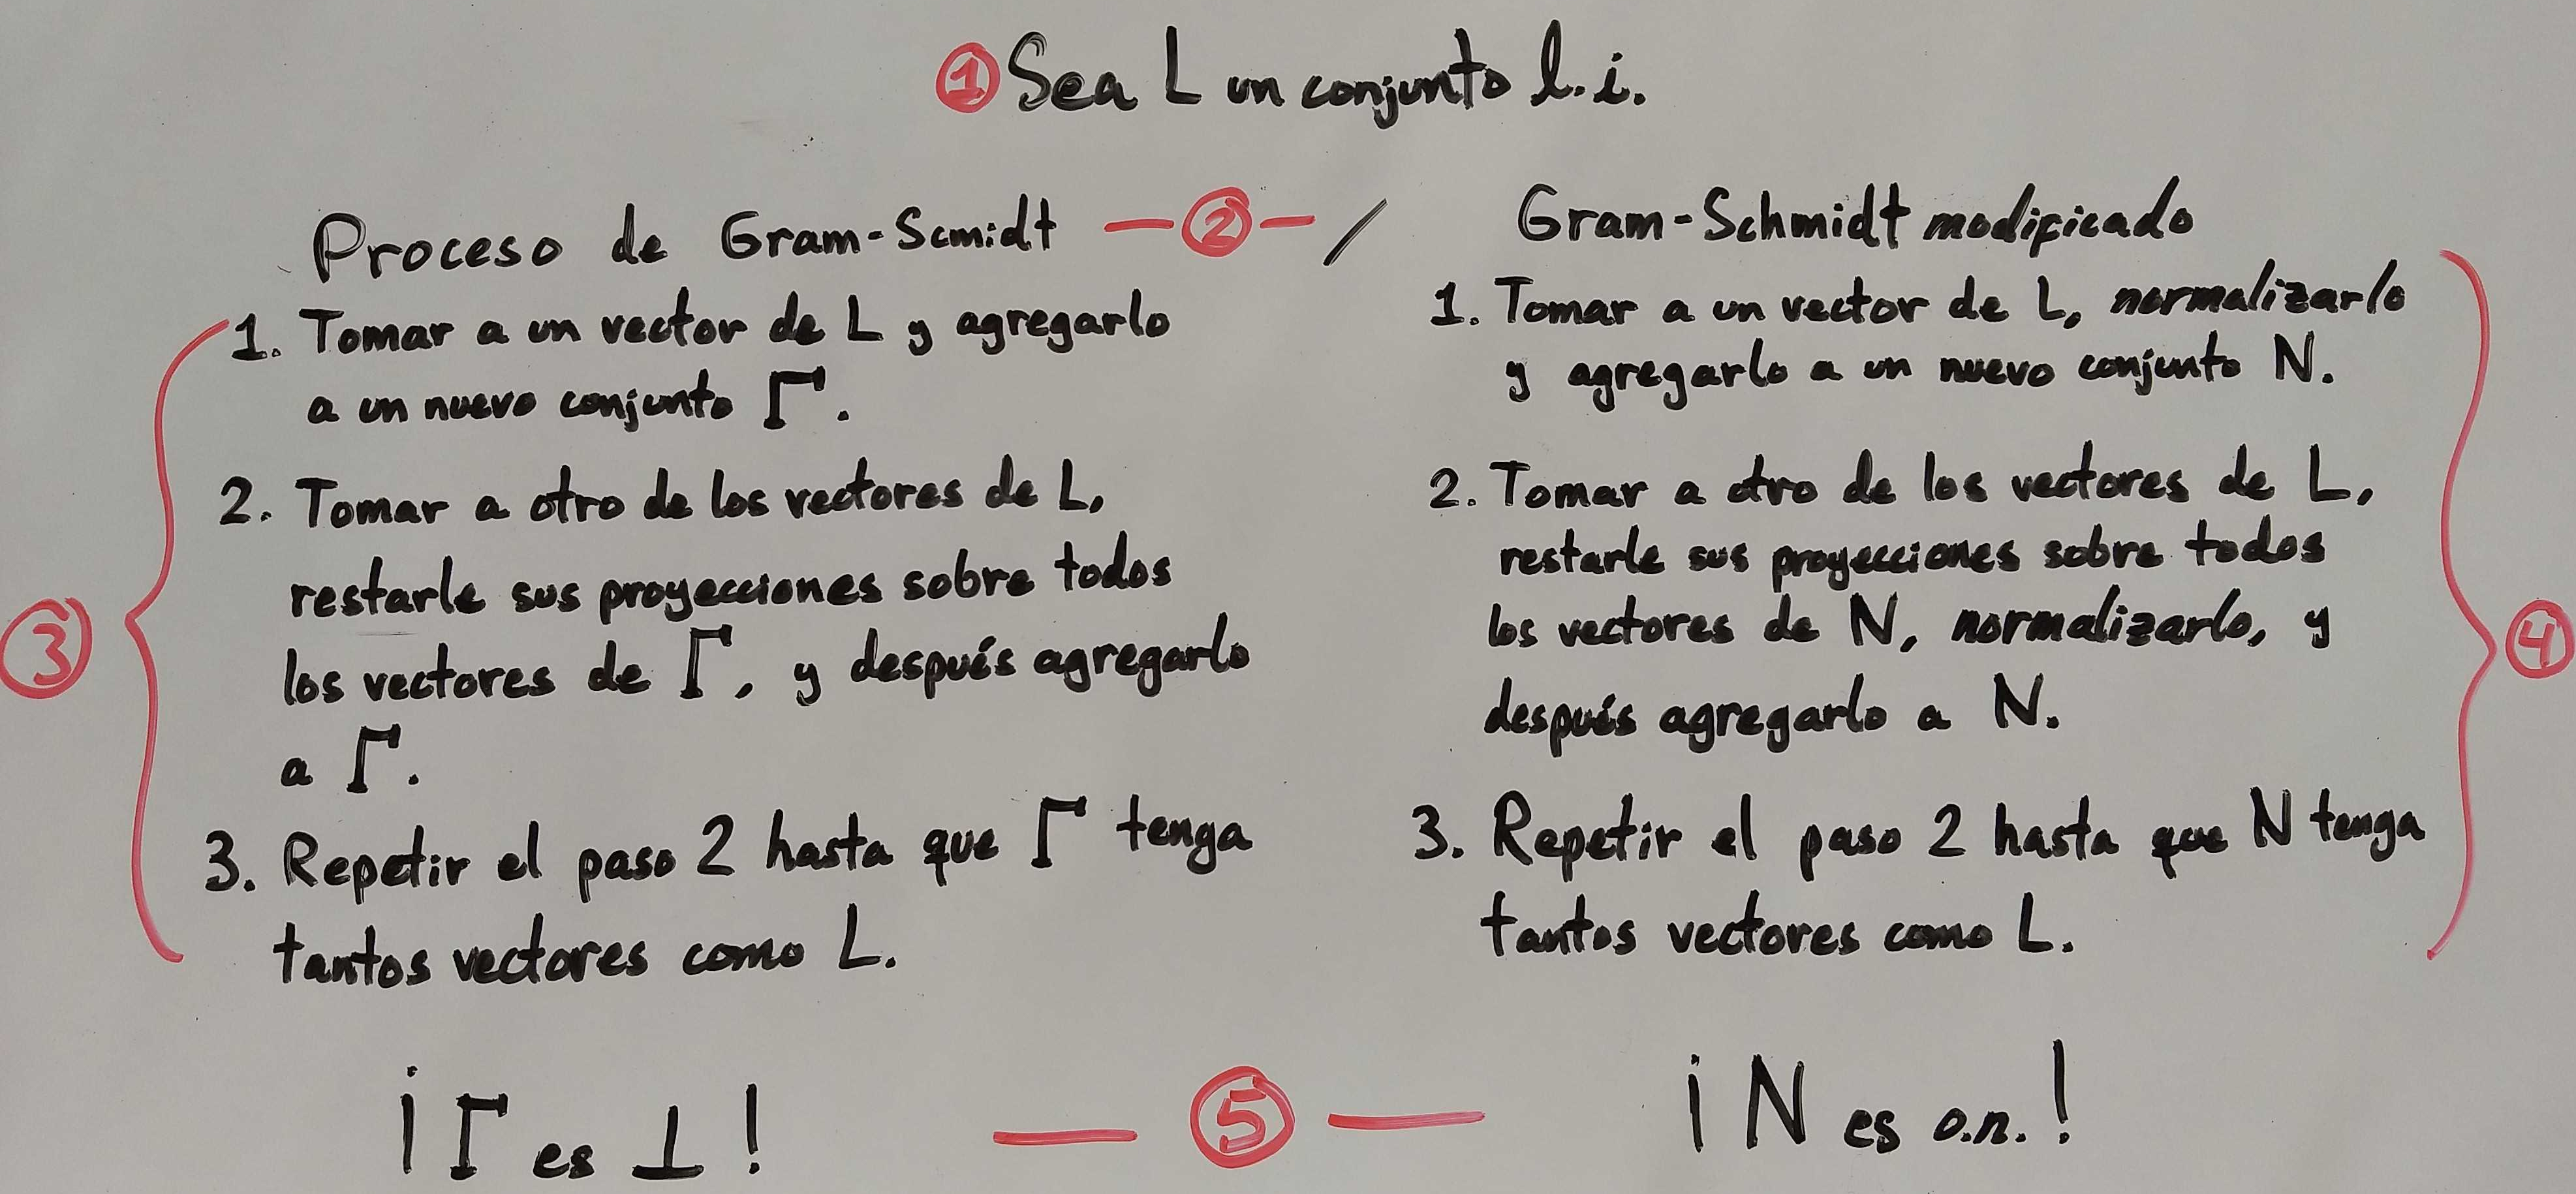 ① Sea L un conjunto l.i.
Proceso de Gram-Scmidt — ② — / Gram-Schmidt modificado
③
1. Tomar a un vector de L y agregarlo
a un nuevo conjunto Γ.
2. Tomar a otro de los vectores de L,
restarle sus proyecciones sobre todos
los vectores de Γ, y después agregarlo
a Γ.
3. Repetir el paso 2 hasta que Γ tenga
tantos vectores como L.
1. Tomar a un vector de L, normalizarlo
y agregarlo a un nuevo conjunto N.
2. Tomar a otro de los vectores de L,
restarle sus proyecciones sobre todos
los vectores de N, normalizarlo, y
después agregarlo a N.
3. Repetir el paso 2 hasta que N tenga
tantos vectores como L.
④
¡Γ es ⊥! — ⑤ — ¡N es o.n.!